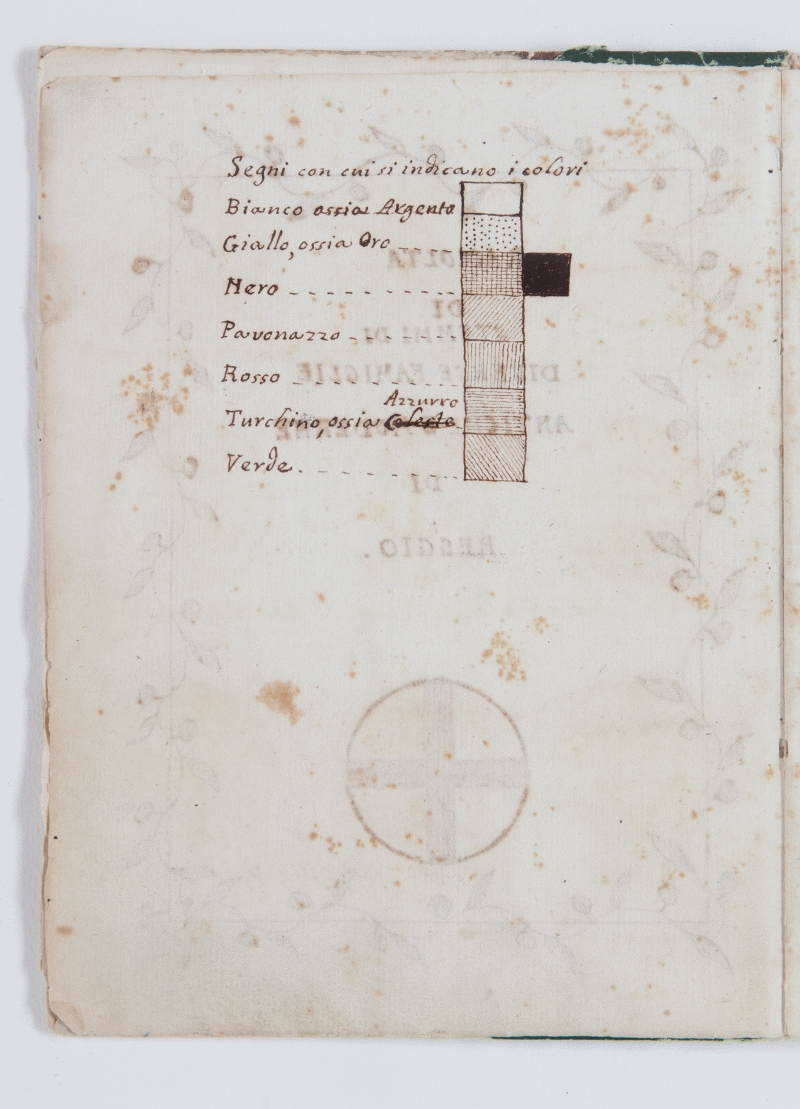 Segni con cui si indicano i colori
Bianco ossia Argento
Giallo, ossia Oro
Nero
Pavonazzo
Rosso
Azzurro
Turchino, ossia Celeste
Verde.